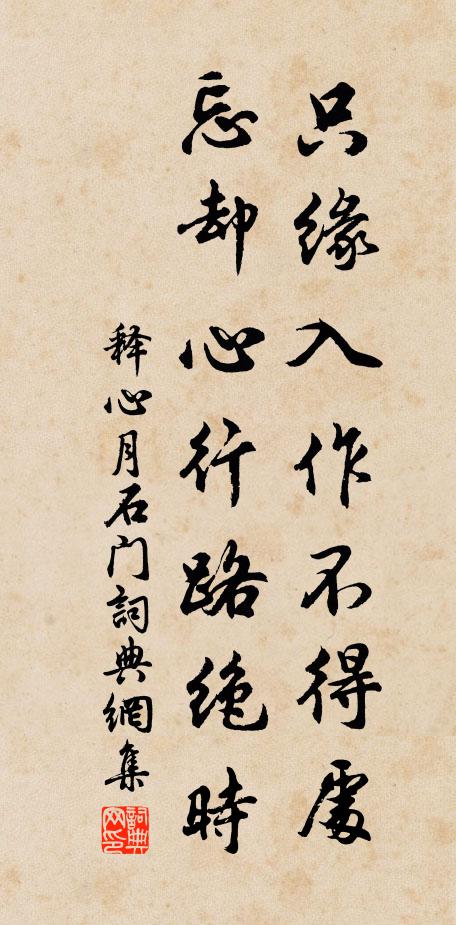 只缘入作不得處
忘却心行路绝時
释心月石门詞典網集
詞典网印